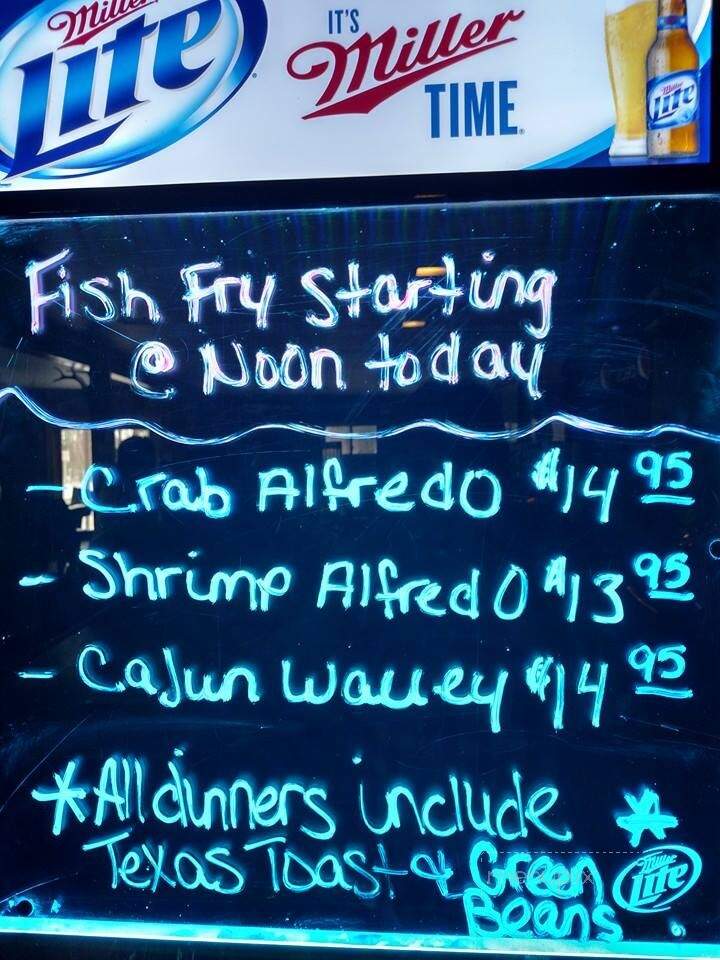 Miller
Lite
IT'S
Miller
TIME.
Miller
Lite
Fish Fry Starting
@ Noon today
- Crab Alfredo $14 95
- Shrimp Alfredo $13 95
- Cajun Walleye $14 95
*All dinners include *
Texas Toast & Green
Beans
Miller
Lite